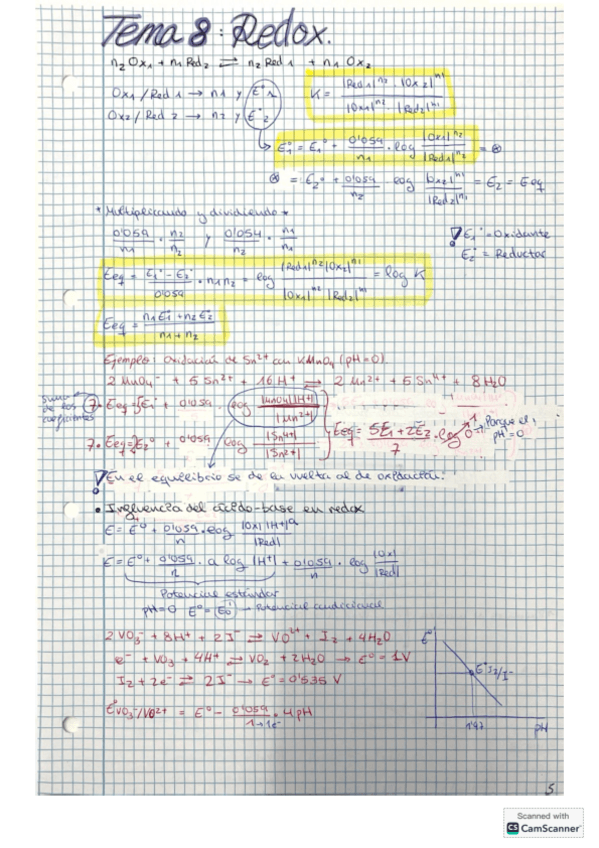 Tema 8: Redox.
n2 Ox1 + n1 Red2 ⇌ n2 Red1 + n1 Ox2
Ox1 / Red1 → n1 y E°1
K = |Red1|^n2 · |Ox2|^n1 / |Ox1|^n2 · |Red2|^n1
Ox2 / Red2 → n2 y E°2
E1 = E1° + 0'059/n1 · log |Ox1|^n2 / |Red1|^n2 = ⊗
⊗ = E2° + 0'059/n2 log |Ox2|^n1 / |Red2|^n1 = E2 = Eeq
* Multiplicando y dividiendo *
0'059/n1 · n2/n2 y 0'059/n2 · n1/n1
! E1° = Oxidante
E2° = Reductor
Eeq = E1° - E2° / 0'059 · n1n2 = log |Red1|^n2 |Ox2|^n1 / |Ox1|^n2 |Red2|^n1 = log K
Eeq = n1E1° + n2E2° / n1 + n2
Ejemplo: Oxidación de Sn2+ con KMnO4 (pH=0)
2 MnO4- + 5 Sn2+ + 16 H+ ⇌ 2 Mn2+ + 5 Sn4+ + 8 H2O
suma de los coeficientes
7· Eeq = 5E1° + 0'059 · log |MnO4||H+| / |Mn2+|
7· Eeq = 2E2° + 0'059 log |Sn4+| / |Sn2+|
Eeq = 5E1 + 2E2 / 7 · log 0 → 1
Porque el pH=0
! En el equilibrio se da la vuelta al de oxidación.
• Influencia del ácido-base en redox
E = E° + 0'059/n · log |Ox| |H+|^a / |Red|
E = E° + 0'059/n · a log |H+| + 0'059/n · log |Ox| / |Red|
Potencial estándar
pH=0 E° = E0' → Potencial condicional
2 VO3- + 8H+ + 2 I- ⇌ VO2+ + I2 + 4H2O
e- + VO3 + 4H+ ⇌ VO2 + 2H2O → E° = 1V
I2 + 2e- ⇌ 2I- → E° = 0'535 V
E°VO3-/VO2+ = E° - 0'059 / 1→1e- · 4pH
E°
E° I2/I-
1'97
pH
5
Scanned with
CS CamScanner